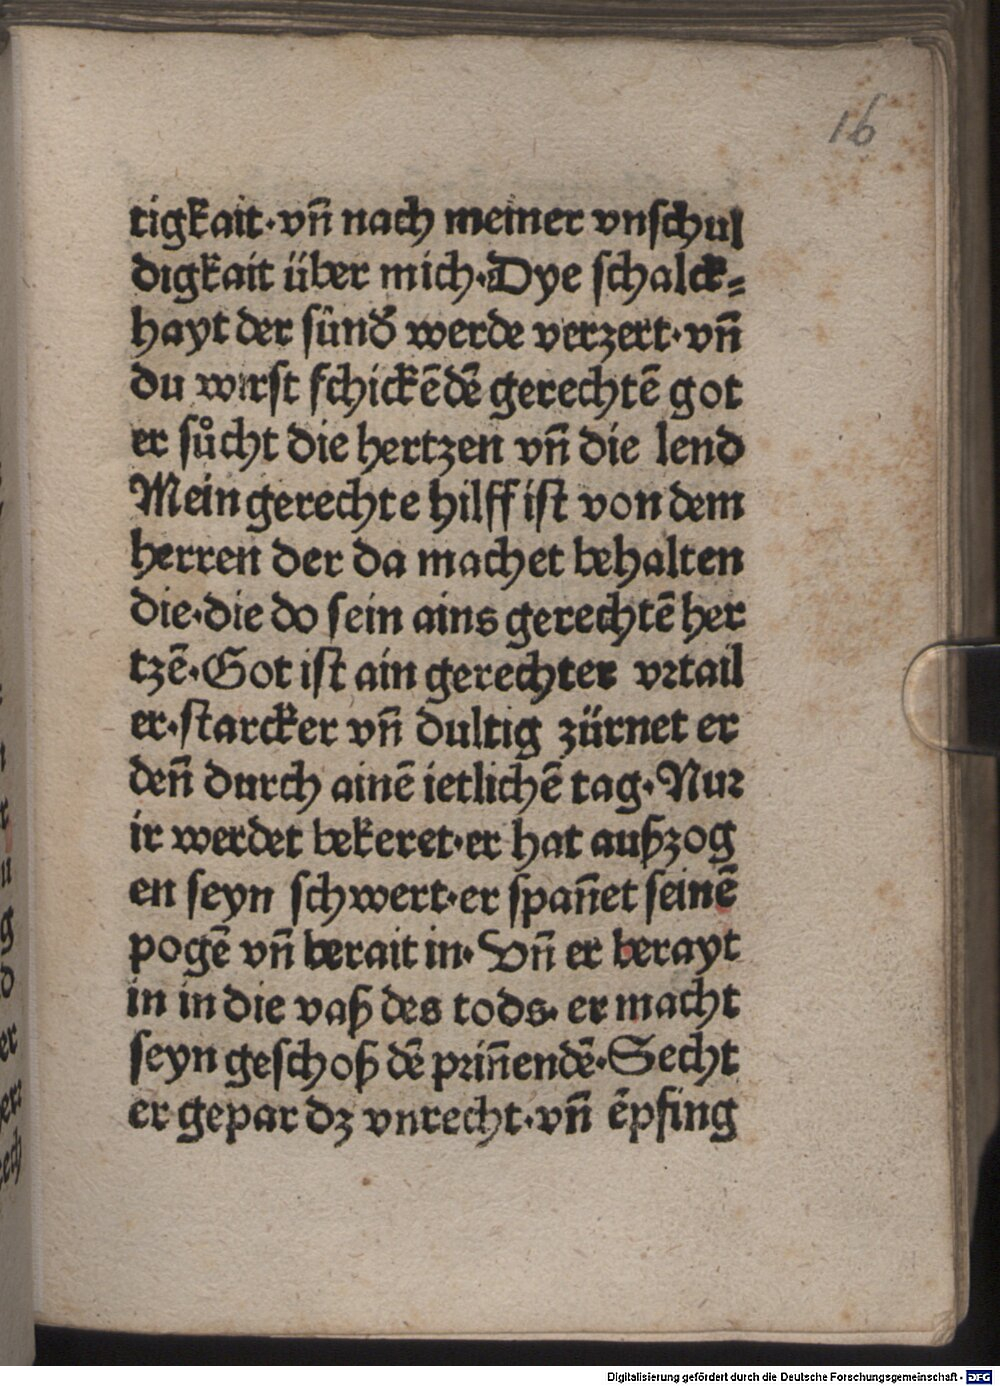 16
tigkait·vn̄ nach meiner vnschul
digkait über mich·Dye schalck=
hayt der sünd' werde verzert·vn̄
du wirst schickēdē gerechtē got
er sůcht die hertzen vn̄ die lend
Mein gerechte hilff ist von dem
herren der da machet behalten
die·die do sein ains gerechtē her
tzē·Got ist ain gerechter vrtail
er·starcker vn̄ dultig zürnet er
den̄ durch ainē ietlichē tag·Nur
ir werdet bekeret·er hat außzog
en seyn schwert·er span̄et seinē
pogē vn̄ berait in·Vn̄ er berayt
in in die vaß des tods·er macht
seyn geschoß dē prin̄endē·Secht
er gepar dz vnrecht·vn̄ ēpfing
Digitalisierung gefördert durch die Deutsche Forschungsgemeinschaft - DFG